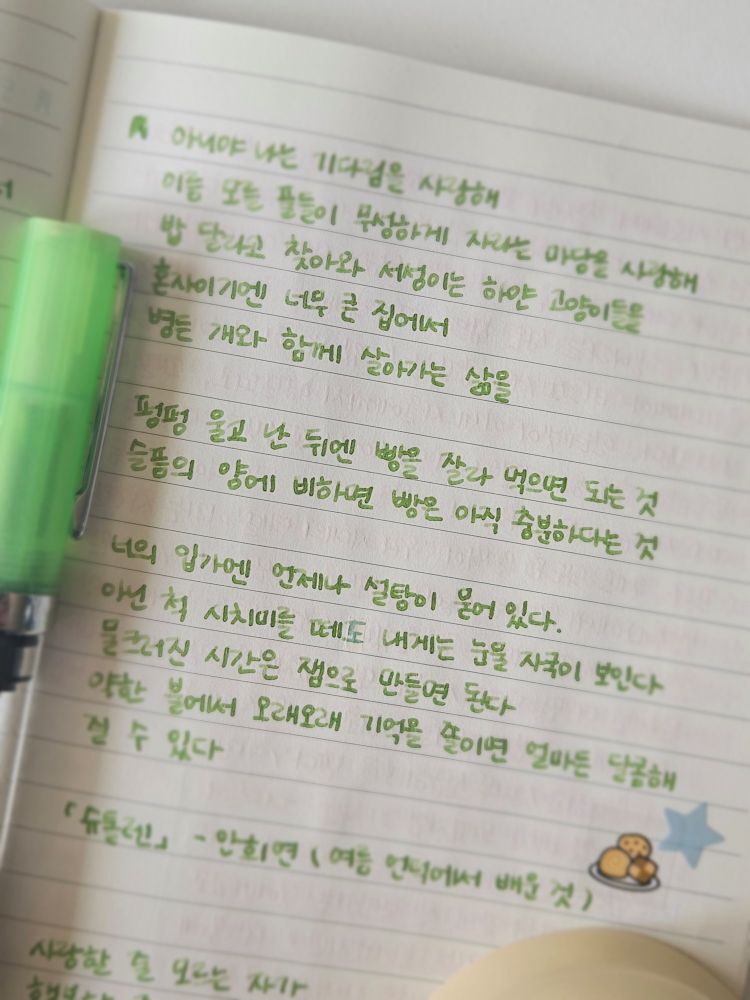 아니야 나는 기다림을 사랑해
이름 모를 풀들이 무성하게 자라는 마당을 사랑해
밥 달라고 찾아와 서성이는 하얀 고양이들을
혼자이기엔 너무 큰 집에서
병든 개와 함께 살아가는 삶을
펑펑 울고 난 뒤엔 빵을 잘라 먹으면 되는 것
슬픔의 양에 비하면 빵은 아직 충분하다는 것
너의 입가엔 언제나 설탕이 묻어 있다.
아닌 척 시치미를 떼도 내게는 눈물 자국이 보인다
물크러진 시간은 잼으로 만들면 된다
약한 불에서 오래오래 기억을 졸이면 얼마든 달콤해
질 수 있다
「슈톨렌」 - 안희연 (여름 언덕에서 배운 것)
사랑한 줄 모르는 자가